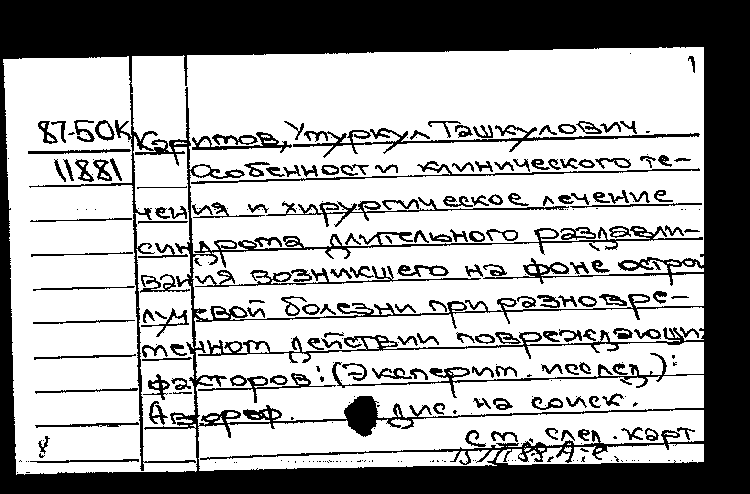 1
87-5ОК Каримов, Утуркул Ташкулович.
11881 Особенности клинического те-
чения и хирургическое лечение
синдрома длительного раздавли-
вания возникшего на фоне острой
лучевой болезни при разновре-
менном действии повреждающих
факторов: (Эксперим. исслед.):
Автореф. дис. на соиск.
см. след. карт
8